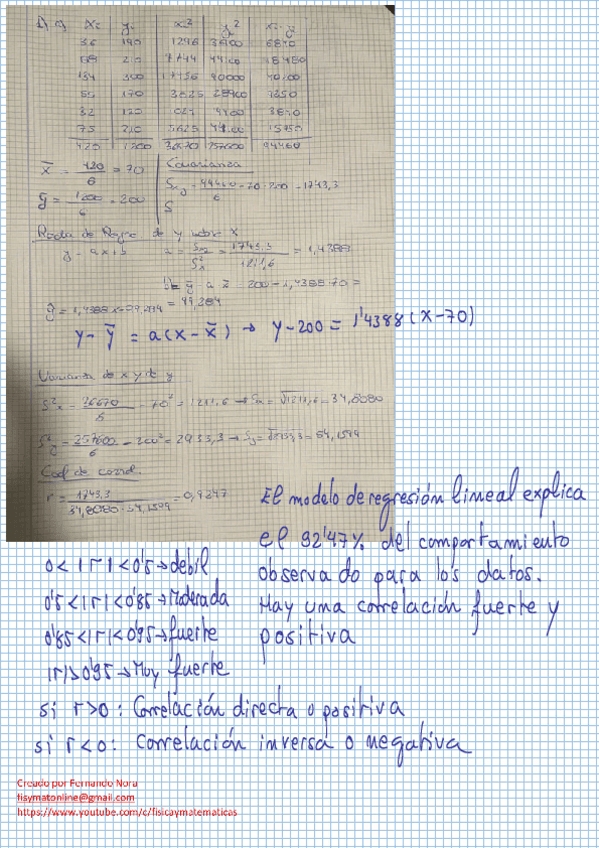 1) a) xi yi xi² yi² xi·yi
36 190 1296 36100 6840
88 210 7744 44100 18480
134 300 17956 90000 40200
55 170 3025 28900 9350
32 120
75 210 5625 44100 15750
420 1200 36670 257600 94460
x̄ = 420/6 = 70
Covarianza
ȳ = 1200/6 = 200
Sxy = 94460/6 - 70·200 = 1743,3
S
Recta de Regre. de y sobre x
y = ax+b a = Sxy/S²x = 1743,3/1211,6 = 1,4388
b = ȳ - a x̄ = 200 - 1,4388·70 =
= 99,284
y - ȳ = a(x - x̄) → y-200 = 1'4388(x-70)
Varianza de x y de y
S²x = 36670/6 - 70² = 1211,6 → Sx = √1211,6 = 34,8080
S²y = 257600/6 - 200² = 2933,3 → Sy = √2933,3 = 54,1599
Coef de correl.
r = 1743,3/34,8080·54,1599 = 0,9247
El modelo de regresión lineal explica
el 92'47% del comportamiento
observado para los datos.
Hay una correlación fuerte y
positiva
0<|r|<0'5→debil
0'5<|r|<0'85→Moderada
0'85<|r|<0'95→fuerte
|r|>0'95→Muy fuerte
si r>0: Correlación directa o positiva
si r<0: Correlación inversa o negativa
Creado por Fernando Nora
fisymatonline@gmail.com
https://www.youtube.com/c/fisicaymatematicas